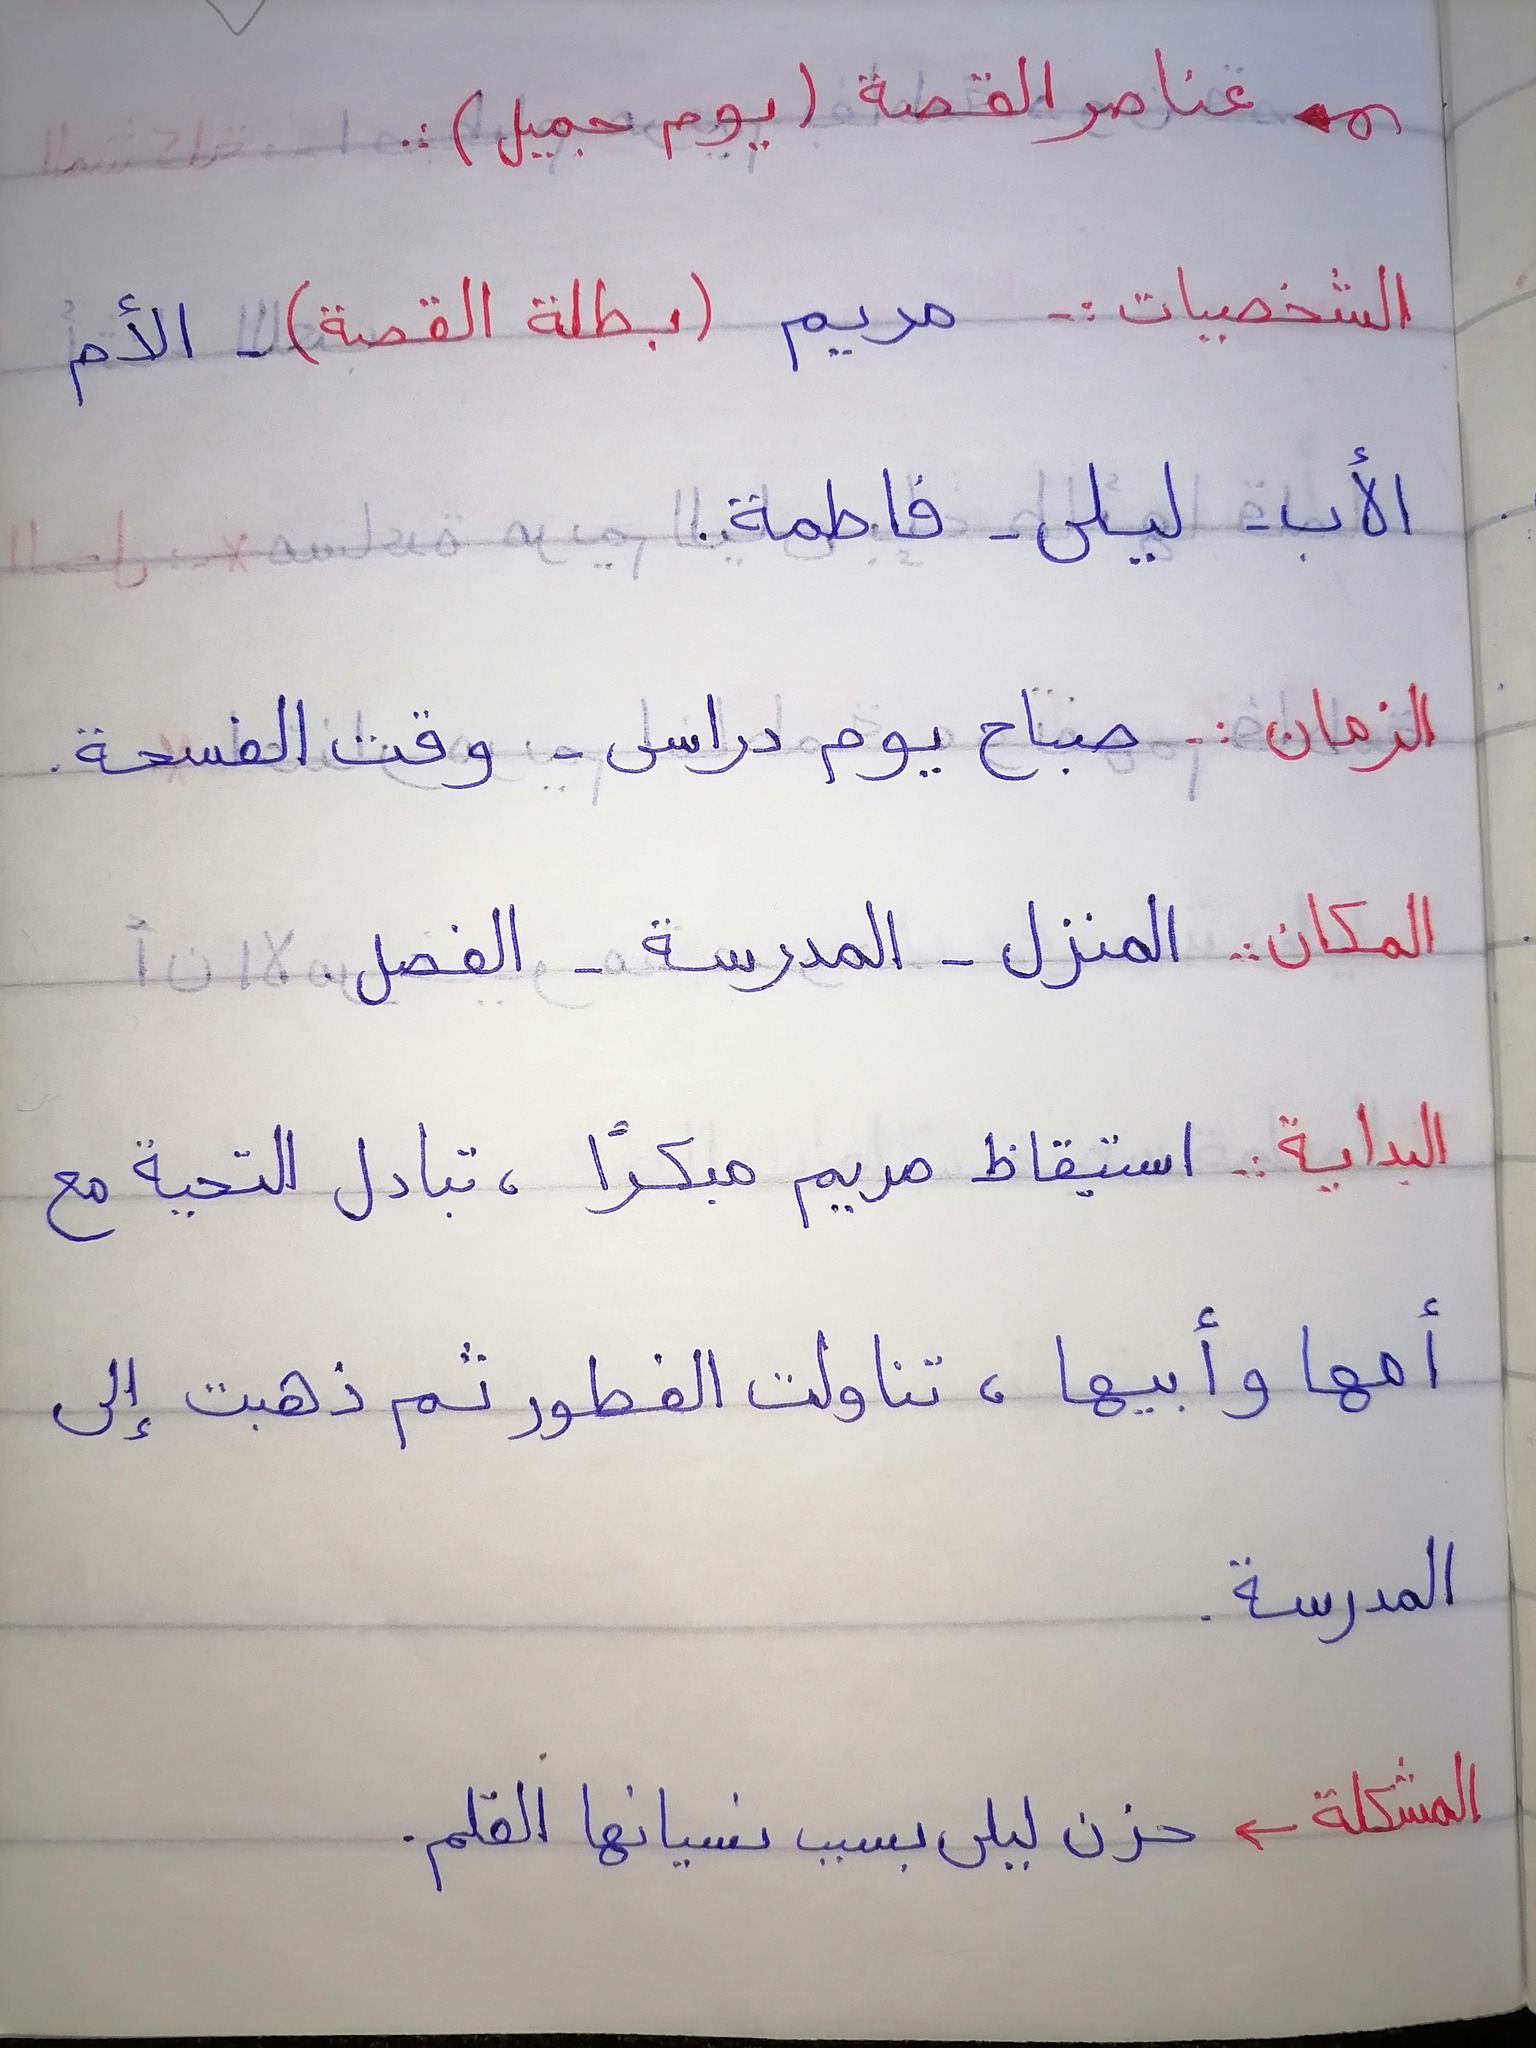 عناصر القصة (يوم جميل) :.
الشخصيات :- مريم (بطلة القصة) - الأم
الأب - ليلى - فاطمة .
الزمان :- صباح يوم دراسى - وقت الفسحة .
المكان :- المنزل - المدرسة - الفصل .
البداية :- استيقاظ مريم مبكرًا ، تبادل التحية مع
أمها وأبيها ، تناولت الفطور ثم ذهبت إلى
المدرسة .
المشكلة ← حزن ليلى بسبب نسيانها القلم .